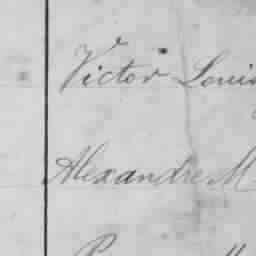 Victor Louis
Alexandre M